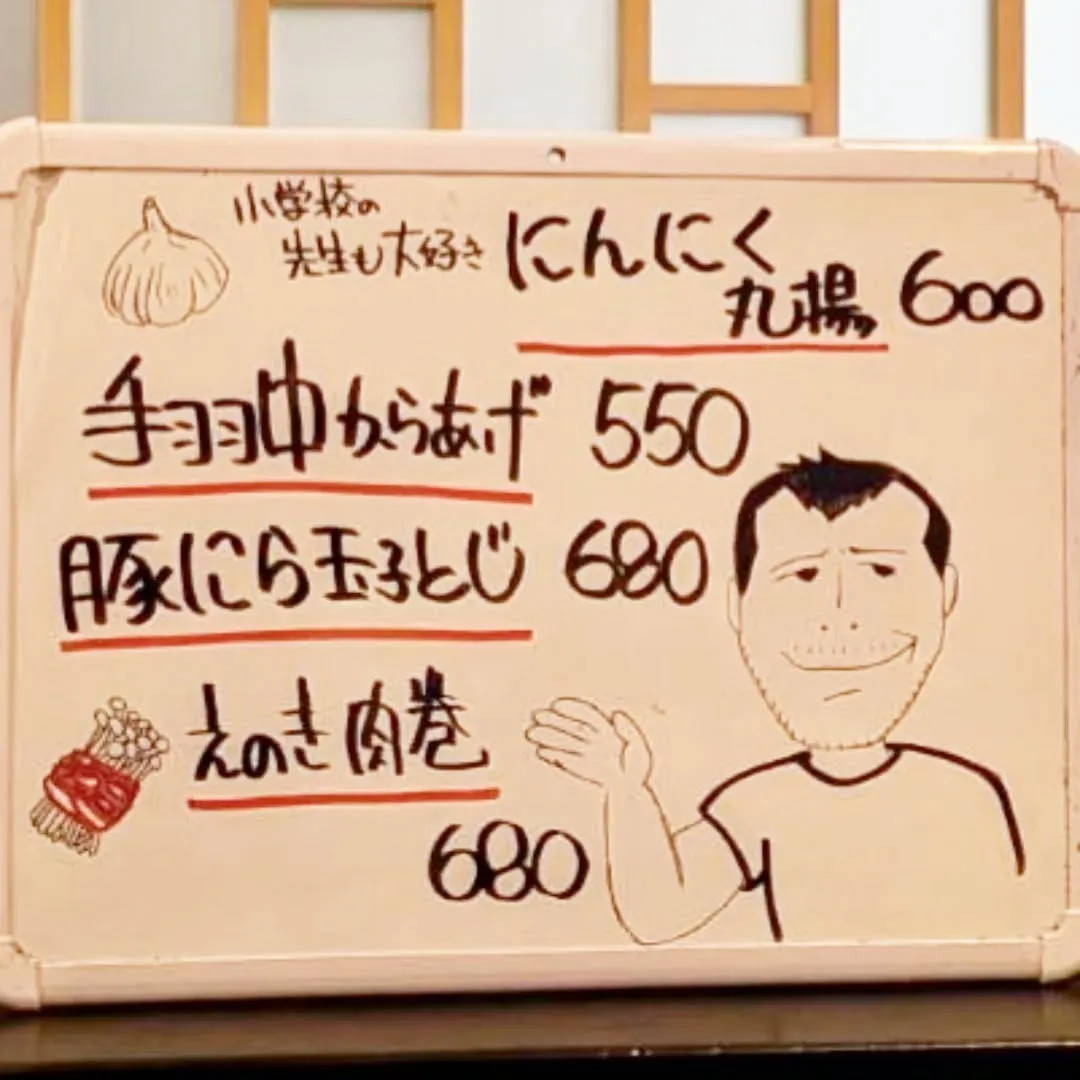 小学校の
先生も大好き
にんにく
丸揚 600
手羽中からあげ 550
豚にら玉子とじ 680
えのき肉巻
680